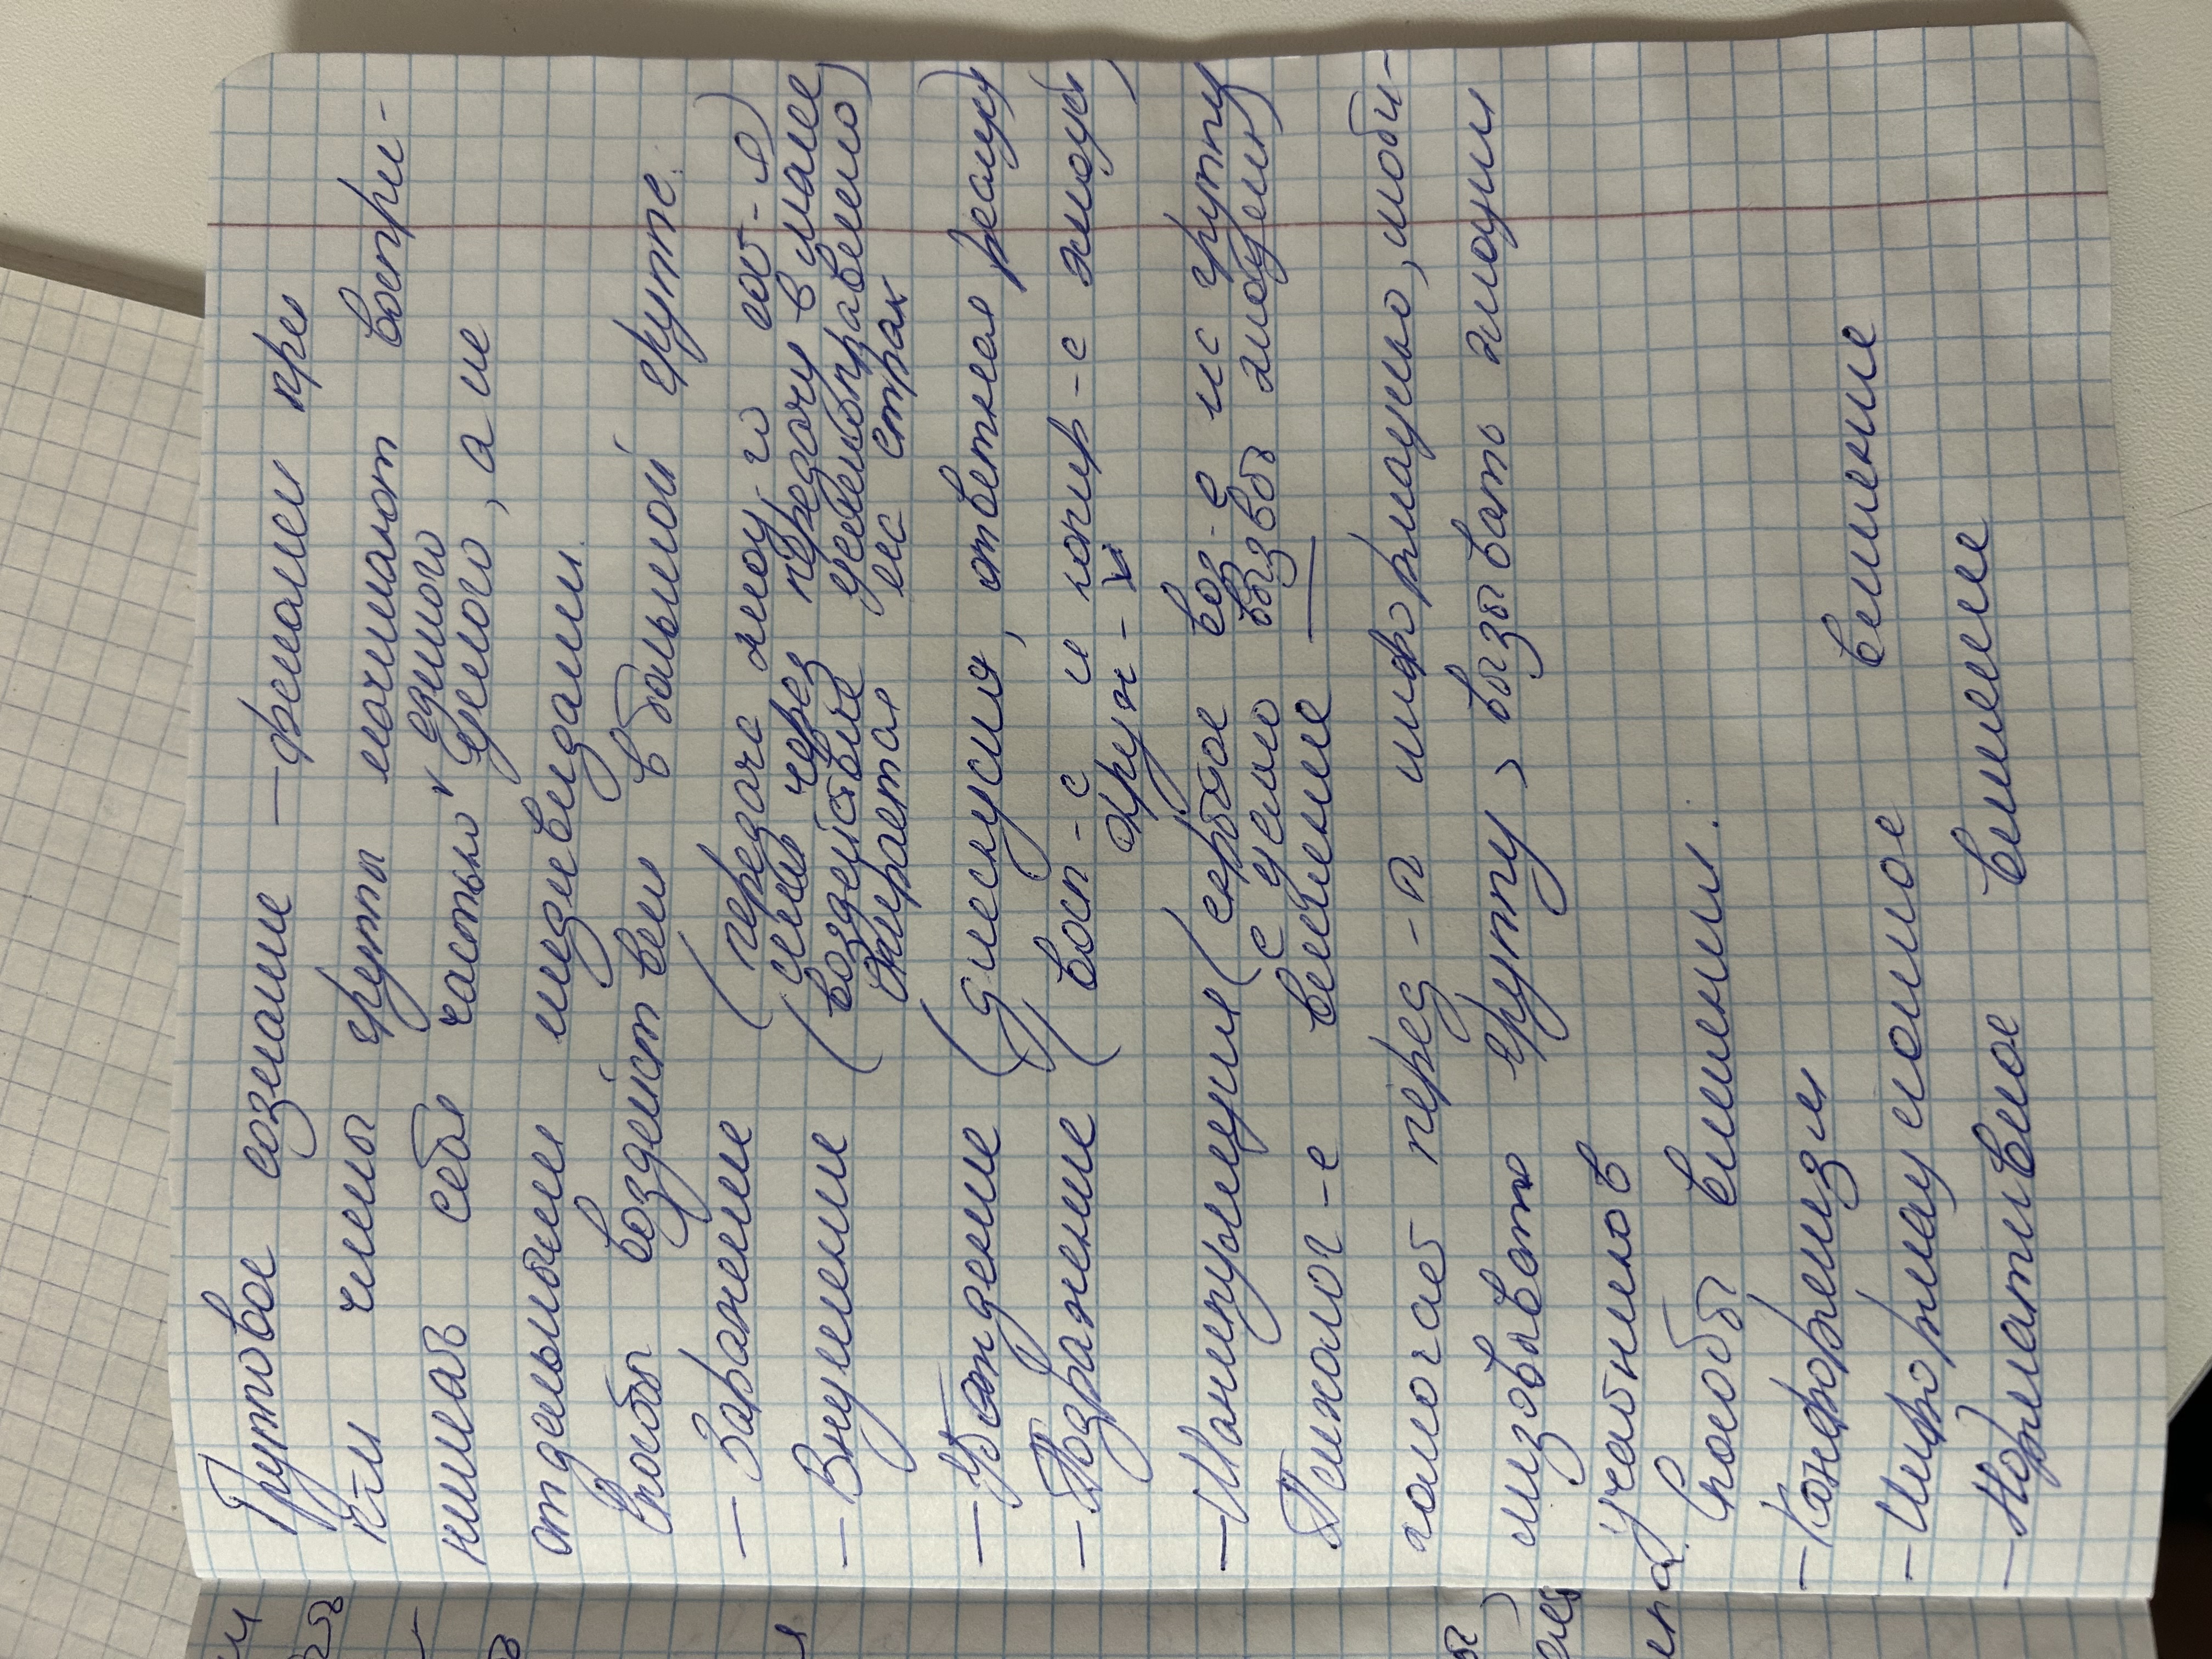 Групповое сознание — феномен при
к-м члены группы начинают воспри-
нимать себя частью единого
целого, а не
отдельными индивидами.
Способы воздействия в большой группе:
— Заражение (передача эмоц-го сост-я)
— Внушение (или через передачу в плане
воздействие целенаправленно)
опирается на страх
— Убеждение (дискуссия, ответная реакция)
— Подражание (восп-е и копир-е эмоций
окруж-х)
— Манипуляция (скрытое воз-е на группу
с целью вызвать эмоции)
Психолог-е влияние
помогает перед-ть информацию, моби-
лизовать группу, вызывать эмоции
участников
Способы влияния.
— Конформизм
— Информационное влияние
— Нормативное влияние